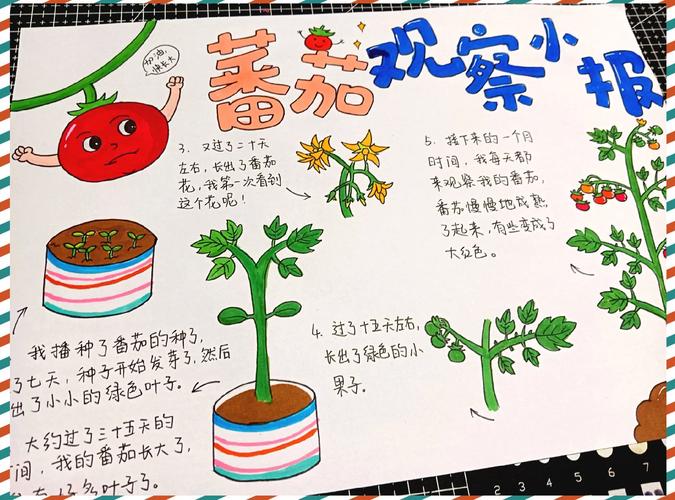 番茄观察小报
加油,
快长大
3. 又过了二十天
左右,长出了番茄
花,我第一次看到
这个花呢!
5. 接下来的一个月
时间,我每天都
来观察我的番茄,
番茄慢慢地成熟
了起来,有些变成了
大红色。
我播种了番茄的种子,
了七天,种子开始发芽了,然后
出了小小的绿色叶子。
4. 过了十五天左右,
长出了绿色的小
果子。
大约过了三十五天的
间,我的番茄长大了,
有好多叶子了。
2 3 4 5 6 7